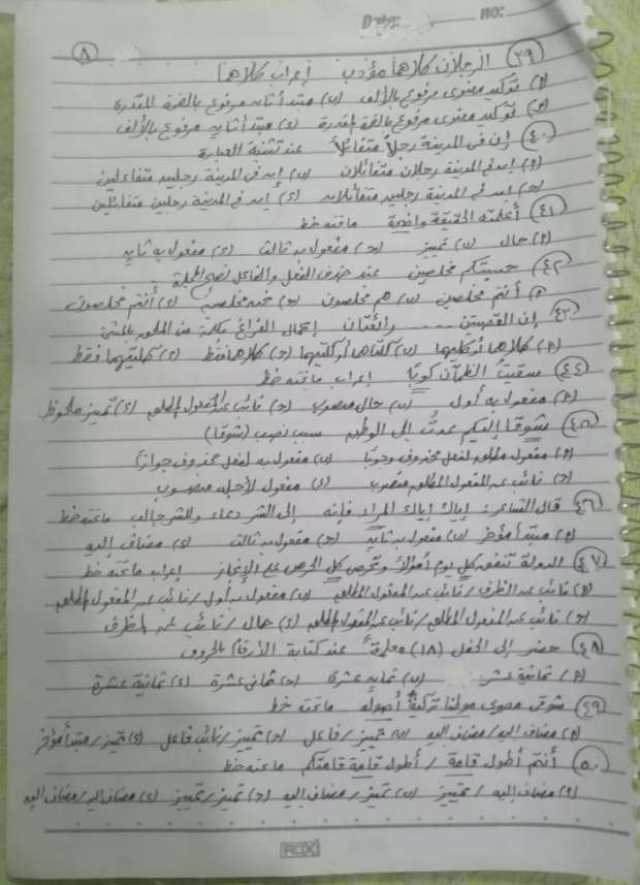 Date: NO:
٨
(٣٩) الرجلان كلاهما مؤدب إعراب كلاهما
(أ) توكيد معنوى مرفوع بالألف (ب) مبتدأ ثانٍ مرفوع بالضمة المقدرة
(ج) توكيد معنوى مرفوع بالضمة المقدرة (د) مبتدأ ثانٍ مرفوع بالألف
(٤٠) إن فى المدينة رجلاً متفائلاً عند تثنية العبارة
(أ) إن فى المدينة رجلان متفائلان (ب) إن فى المدينة رجلين متفاعلين
(ج) إن فى المدينة رجلين متفائلان (د) إن فى المدينة رجلين متفائلين
(٤١) أعلمته الحقيقة واضحة ما تحته خط
(أ) حال (ب) تمييز (ج) مفعول به ثالث (د) مفعول به ثانٍ
(٤٢) حسبتكم مخلصين عند حذف الفعل والفاعل تصبح الجملة
(أ) أنتم مخلصين (ب) هم مخلصون (ج) مخلصين (د) أنتم مخلصون
(٤٣) إن القصيتين ---- رائعتان إكمال الفراغ بكلمة من الملحق بالمثنى
(أ) كلاهما أو كليهما (ب) كلتاهما أو كلتيهما (ج) كلاهما فقط (د) كلتيهما فقط
(٤٤) سقيتُ الظمآن كوبًا إعراب ما تحته خط
(أ) مفعول به أول (ب) حال منصوب (ج) نائب عن المفعول المطلق (د) تمييز ملحوظ
(٤٥) شوقا إليكم عدتُ إلى الوطن سبب نصب (شوقا)
(أ) مفعول مطلق لفعل محذوف وجوبًا (ب) مفعول به لفعل محذوف جوازًا
(ج) نائب عن المفعول المطلق منصوب (د) مفعول لأجله منصوب
(٤٦) قال الشاعر: إياك إياك المراء فإنه إلى الشر دعاء وللشر جالب ما تحته خط
(أ) مبتدأ مؤخر (ب) مفعول به ثانٍ (ج) مفعول به ثالث (د) مضاف إليه
(٤٧) الدولة تنفق كل يوم أموالاً وتحرص كل الحرص على الإنجاز إعراب ما تحته خط
(أ) نائب عن الظرف / نائب عن المفعول المطلق (ب) مفعول به أول / نائب عن المفعول المطلق
(ج) نائب عن المفعول المطلق / نائب عن المفعول المطلق (د) حال / نائب عن الظرف
(٤٨) حضر إلى الحفل (١٨) عند كتابة الأرقام بالحروف
(أ) ثمانية عشر (ب) ثمان عشرة (ج) ثمانى عشرة (د) ثمانية عشرة
(٤٩) شوقى مصرى مولدًا تركية أصوله ما تحته خط
(أ) مضاف إليه / مضاف إليه (ب) تمييز / فاعل (ج) تمييز / نائب فاعل (د) تمييز / مبتدأ مؤخر
(٥٠) أنتم أطول قامة / أطول قامة قامتكم ما تحته خط
(أ) مضاف إليه / تمييز (ب) تمييز / مضاف إليه (ج) تمييز / تمييز (د) مضاف إليه / مضاف إليه
ROX